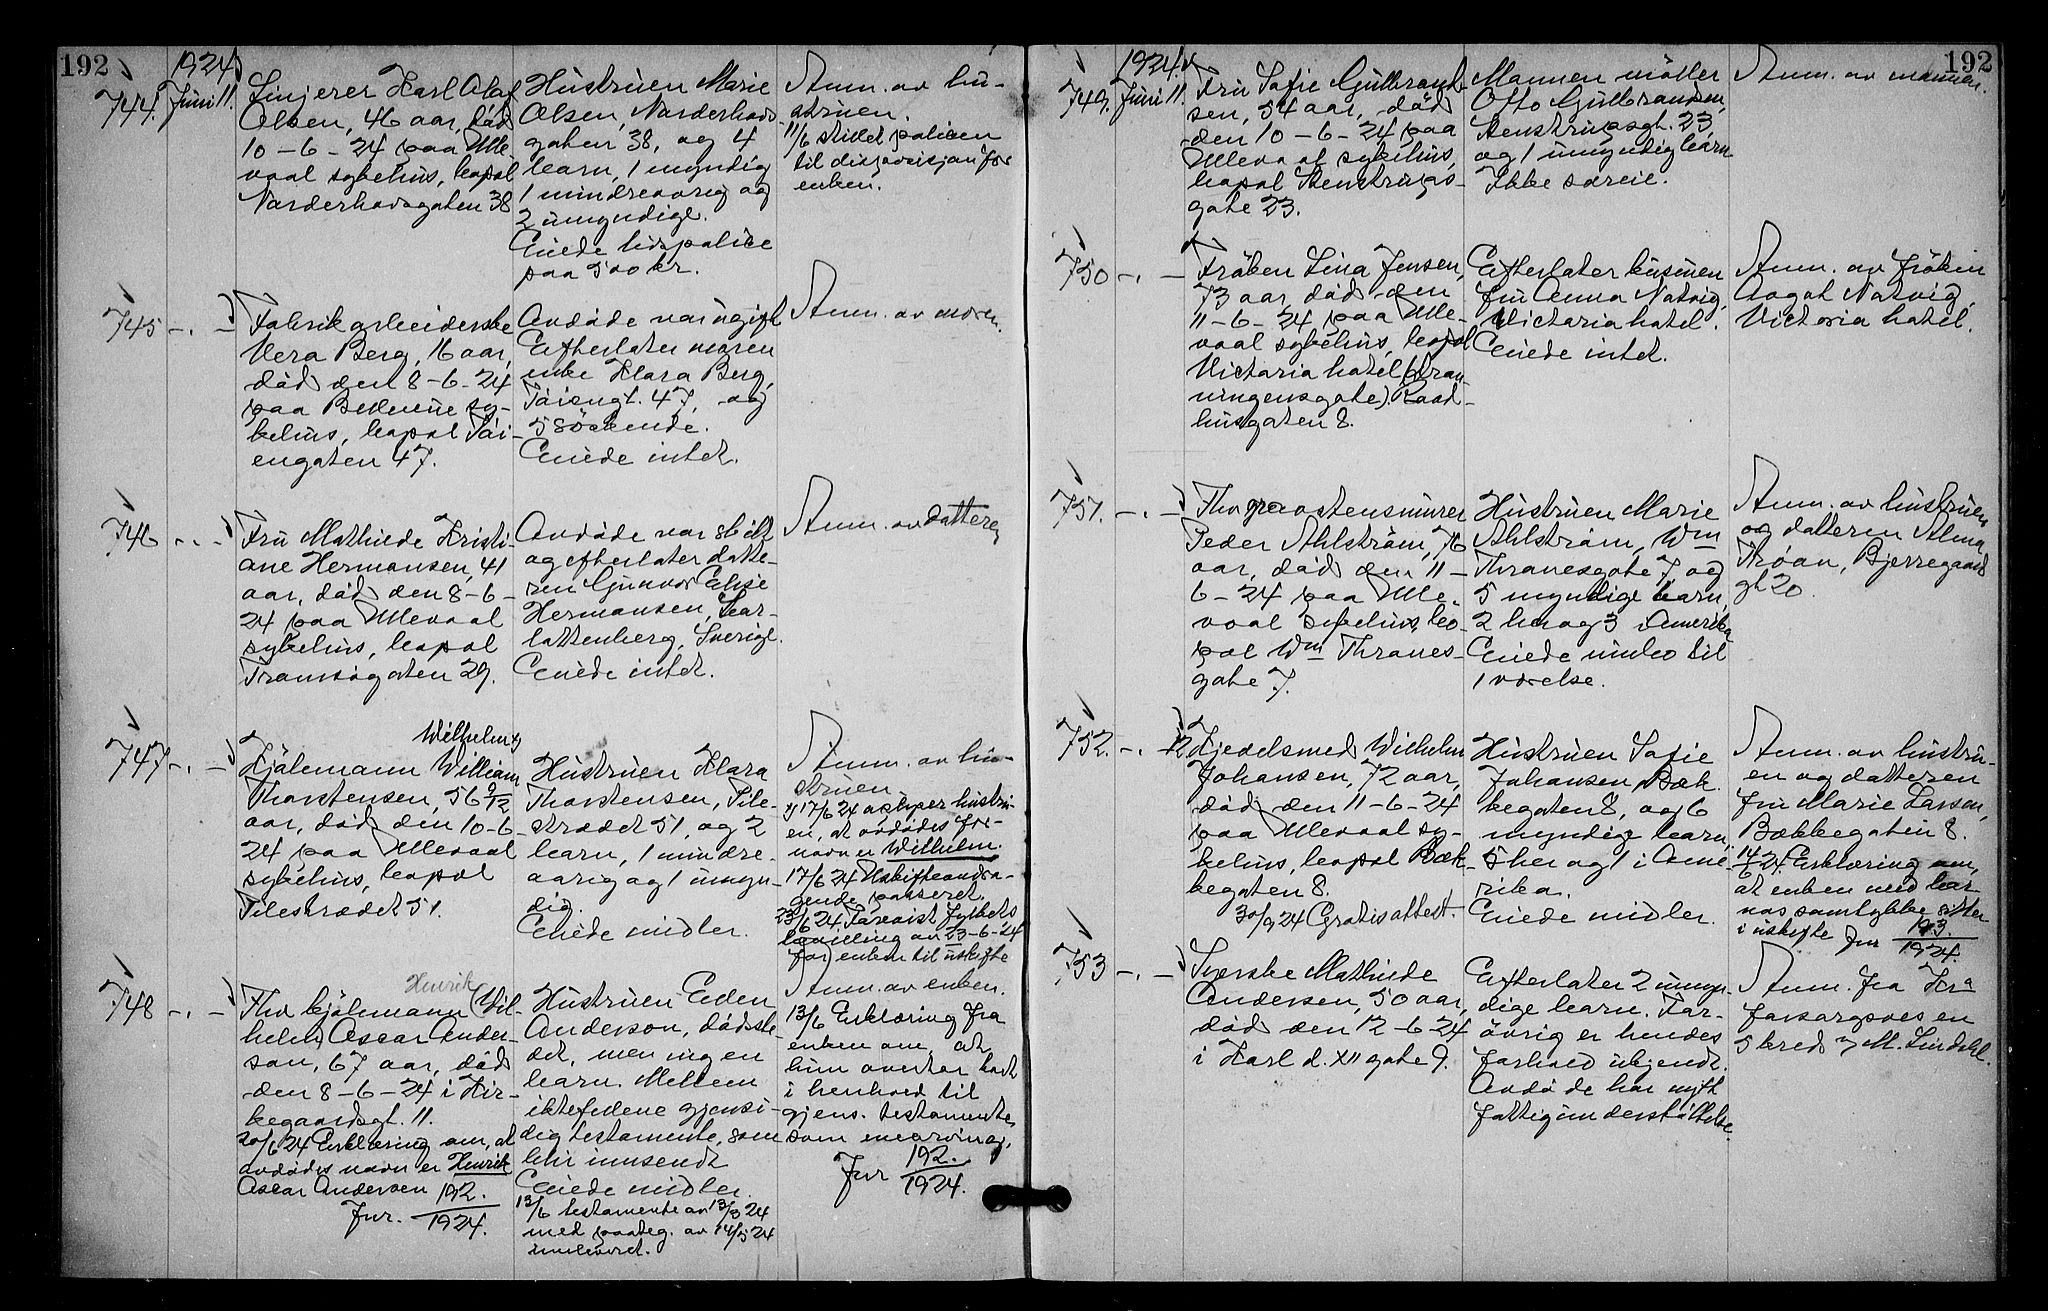 192
1924
744. Juni 11.
Linjerer Karl Olaf
Olsen, 46 aar, död
10-6-24 paa Ulle-
vaal sykehus, bopæl
Norderhovsgaten 38
Hustruen Marie
Olsen, Norderhovs
gaten 38, og 4
barn, 1 myndig
1 mindreaarig og
2 umyndige.
Eiede livspolice
paa 500 kr.
Anm. av hu-
struen.
11/6 stillet policen
til disposisjon for
enken.
745 -.-
Fabrikarbeiderske
Vera Berg, 16 aar,
död den 8-6-24
paa Bellevue sy-
kehus, bopæl Töi-
engaten 47.
Avdöde var ugift
Efterlater moren
enke Klara Berg,
Töiengt. 47, og
5 söskende.
Eiede intet.
Anm. av moren.
746 -.-
Fru Mathilde Kristi-
ane Hermansen, 41
aar, död den 8-6-
24 paa Ullevaal
sykehus, bopæl
Tromsögaten 29.
Avdöde var skilt
og efterlater datte-
ren Gunvor Elise
Hermansen,
Sverige.
Eiede intet.
Anm. av datteren
747 -.-
Wilhelm
Kjölemann William
Thorstensen, 56 9/12
aar, död den 10-6-
24 paa Ullevaal
sykehus, bopæl
Pilestrædet 51.
Hustruen Klara
Thorstensen, Pile-
strædet 51, og 2
barn, 1 mindre-
aarig og 1 umyn-
dig.
Eiede midler.
Anm. av hu-
struen
17/6 24 opgiver hustru-
en, at avdödes for-
navn er Wilhelm.
17/6 24 Uskifteandra-
gende passeret.
23/6 24 Parevist fylkets
bevilling av 23-6-24
for enken til uskifte
748 -.-
Henrik
Fhv kjölemann (Wil-
helm) Oscar Ander-
son, 67 aar, död
den 8-6-24 i Kir-
kegaardsgt. 11.
20/6 24 Erklæring om, at
avdödes navn er Henrik
Oscar Anderson
Jnr. 192./1924.
Hustruen Ellen
Anderson, dödsste-
det, men ingen
barn. Mellem
ektefellene gjensi-
dig testamente, som
blir innsendt
Eiede midler.
13/6 testamente av 13/3 24
med paateg. av 14/5 24
innleveret.
Anm. av enken.
13/6 Erklæring fra
enken om, at
hun overtar boet
i henhold til
gjens. testamente
som enearving,
Jnr 192./1924.
192
1924
749. Juni 11.
Fru Sofie Gulbrand-
sen, 54 aar, död
den 10-6-24 paa
Ullevaal sykehus,
bopæl Stenstrups-
gate 23.
Mannen möller
Otto Gulbrandsen,
Stenstrupsgt. 23,
og 1 umyndig barn
Ikke særeie.
Anm. av mannen.
750 -.-
Fröken Lina Jensen,
73 aar, död den
11-6-24 paa Ulle-
vaal sykehus, bopæl
Victoria hotel (Dron-
ningensgate) Raad-
husgaten 8.
Efterlater kusinen
fru Anna Natvig,
Victoria hotel.
Eiede intet.
Anm. av fröken
Aagot Natvig,
Victoria hotel.
751. -.-
Fhv graastensmurer
Peder Ahlström, 76
aar, död den 11-
6-24 paa Ulle-
vaal sykehus, bo-
pæl Wm Thranes-
gate 7.
Hustruen Marie
Ahlström, Wm
Thranesgate 7, og
5 myndige barn,
2 her og 3 i Amerika
Eiede innbo til
1 værelse.
Anm. av hustruen
og datteren Alma
Tröan, Bjerregaards
gt 20.
752. -.- 12
Kjedelsmed Wilhelm
Johansen, 72 aar,
död den 11-6-24
paa Ullevaal sy-
kehus, bopæl Bæk-
kegaten 8.
30/9 24 Gratis attest.
Hustruen Sofie
Johansen, Bæk-
kegaten 8, og 6
myndige barn,
5 her og 1 i Ame-
rika.
Eiede midler.
Anm. av hustru-
en og datteren
fru Marie Larsen,
Bækkegaten 8.
14/6 24. Erklæring om,
at enken med bar-
nas samtykke sitter
i uskifte Jnr 193./1924.
753 -.-
Syerske Mathilde
Andersen, 50 aar,
död den 12-6-24
i Karl d. XII gate 9.
Efterlater 2 umyn-
dige barn. For-
övrig er hendes
forhold ubekjendt.
Avdöde har nytt
fattigunderstöttelse.
Anm. fra Kra
forsorgsvesen
5 kreds v M. Lindahl.